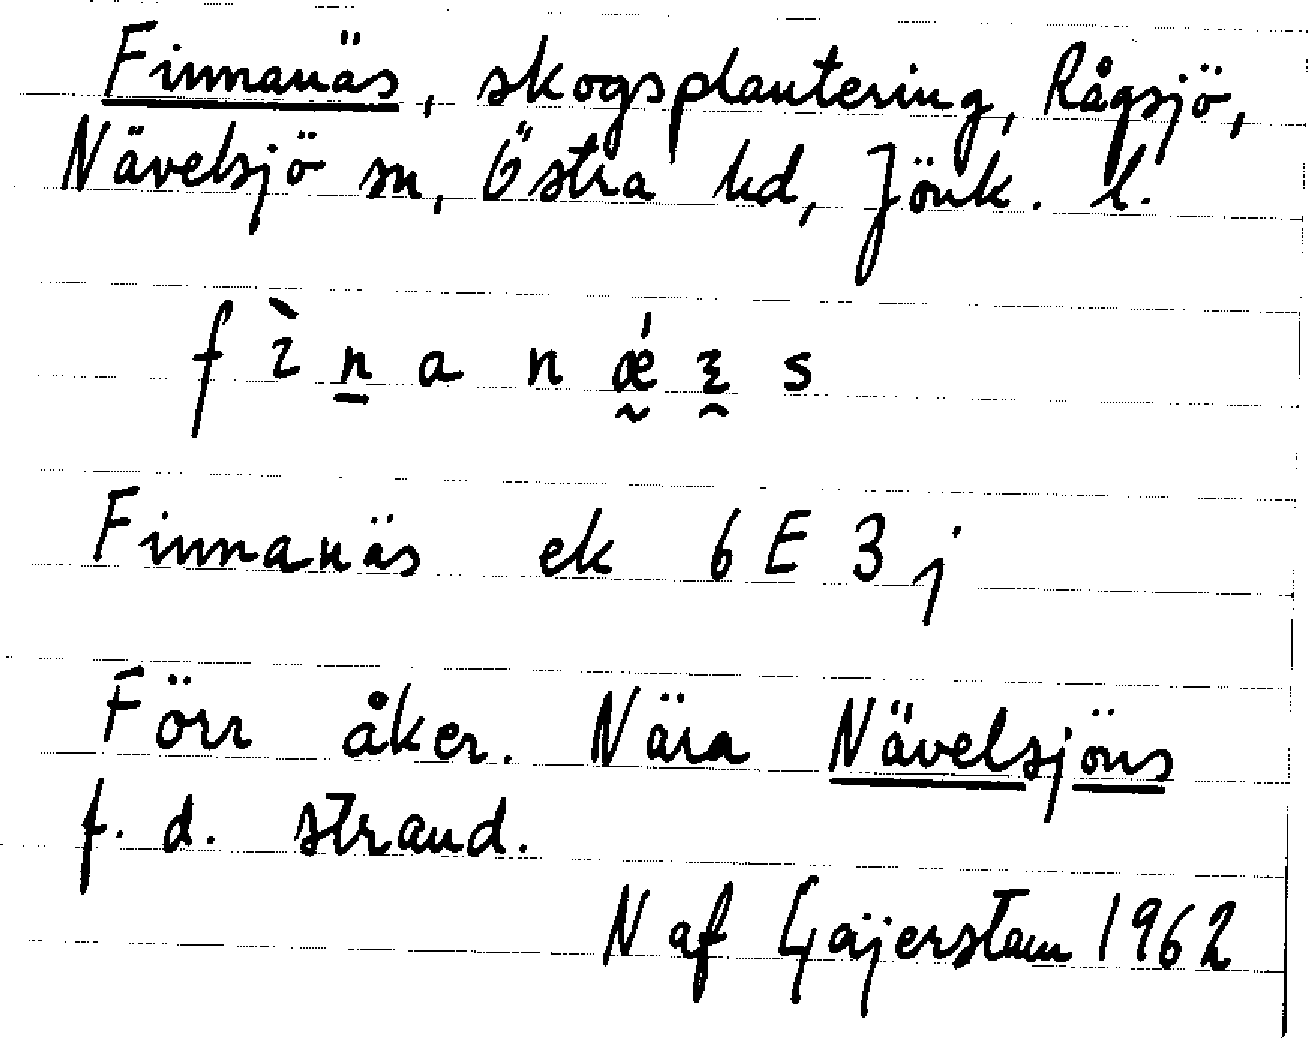 Finnanäs, skogsplantering, Rågsjö,
Nävelsjö sn, Östra hd, Jönk. l.
f ì n a n ǽ s
Finnanäs ek 6 E 3 j
Förr åker. Nära Nävelsjöns
f. d. strand.
N af Gajerstam 1962